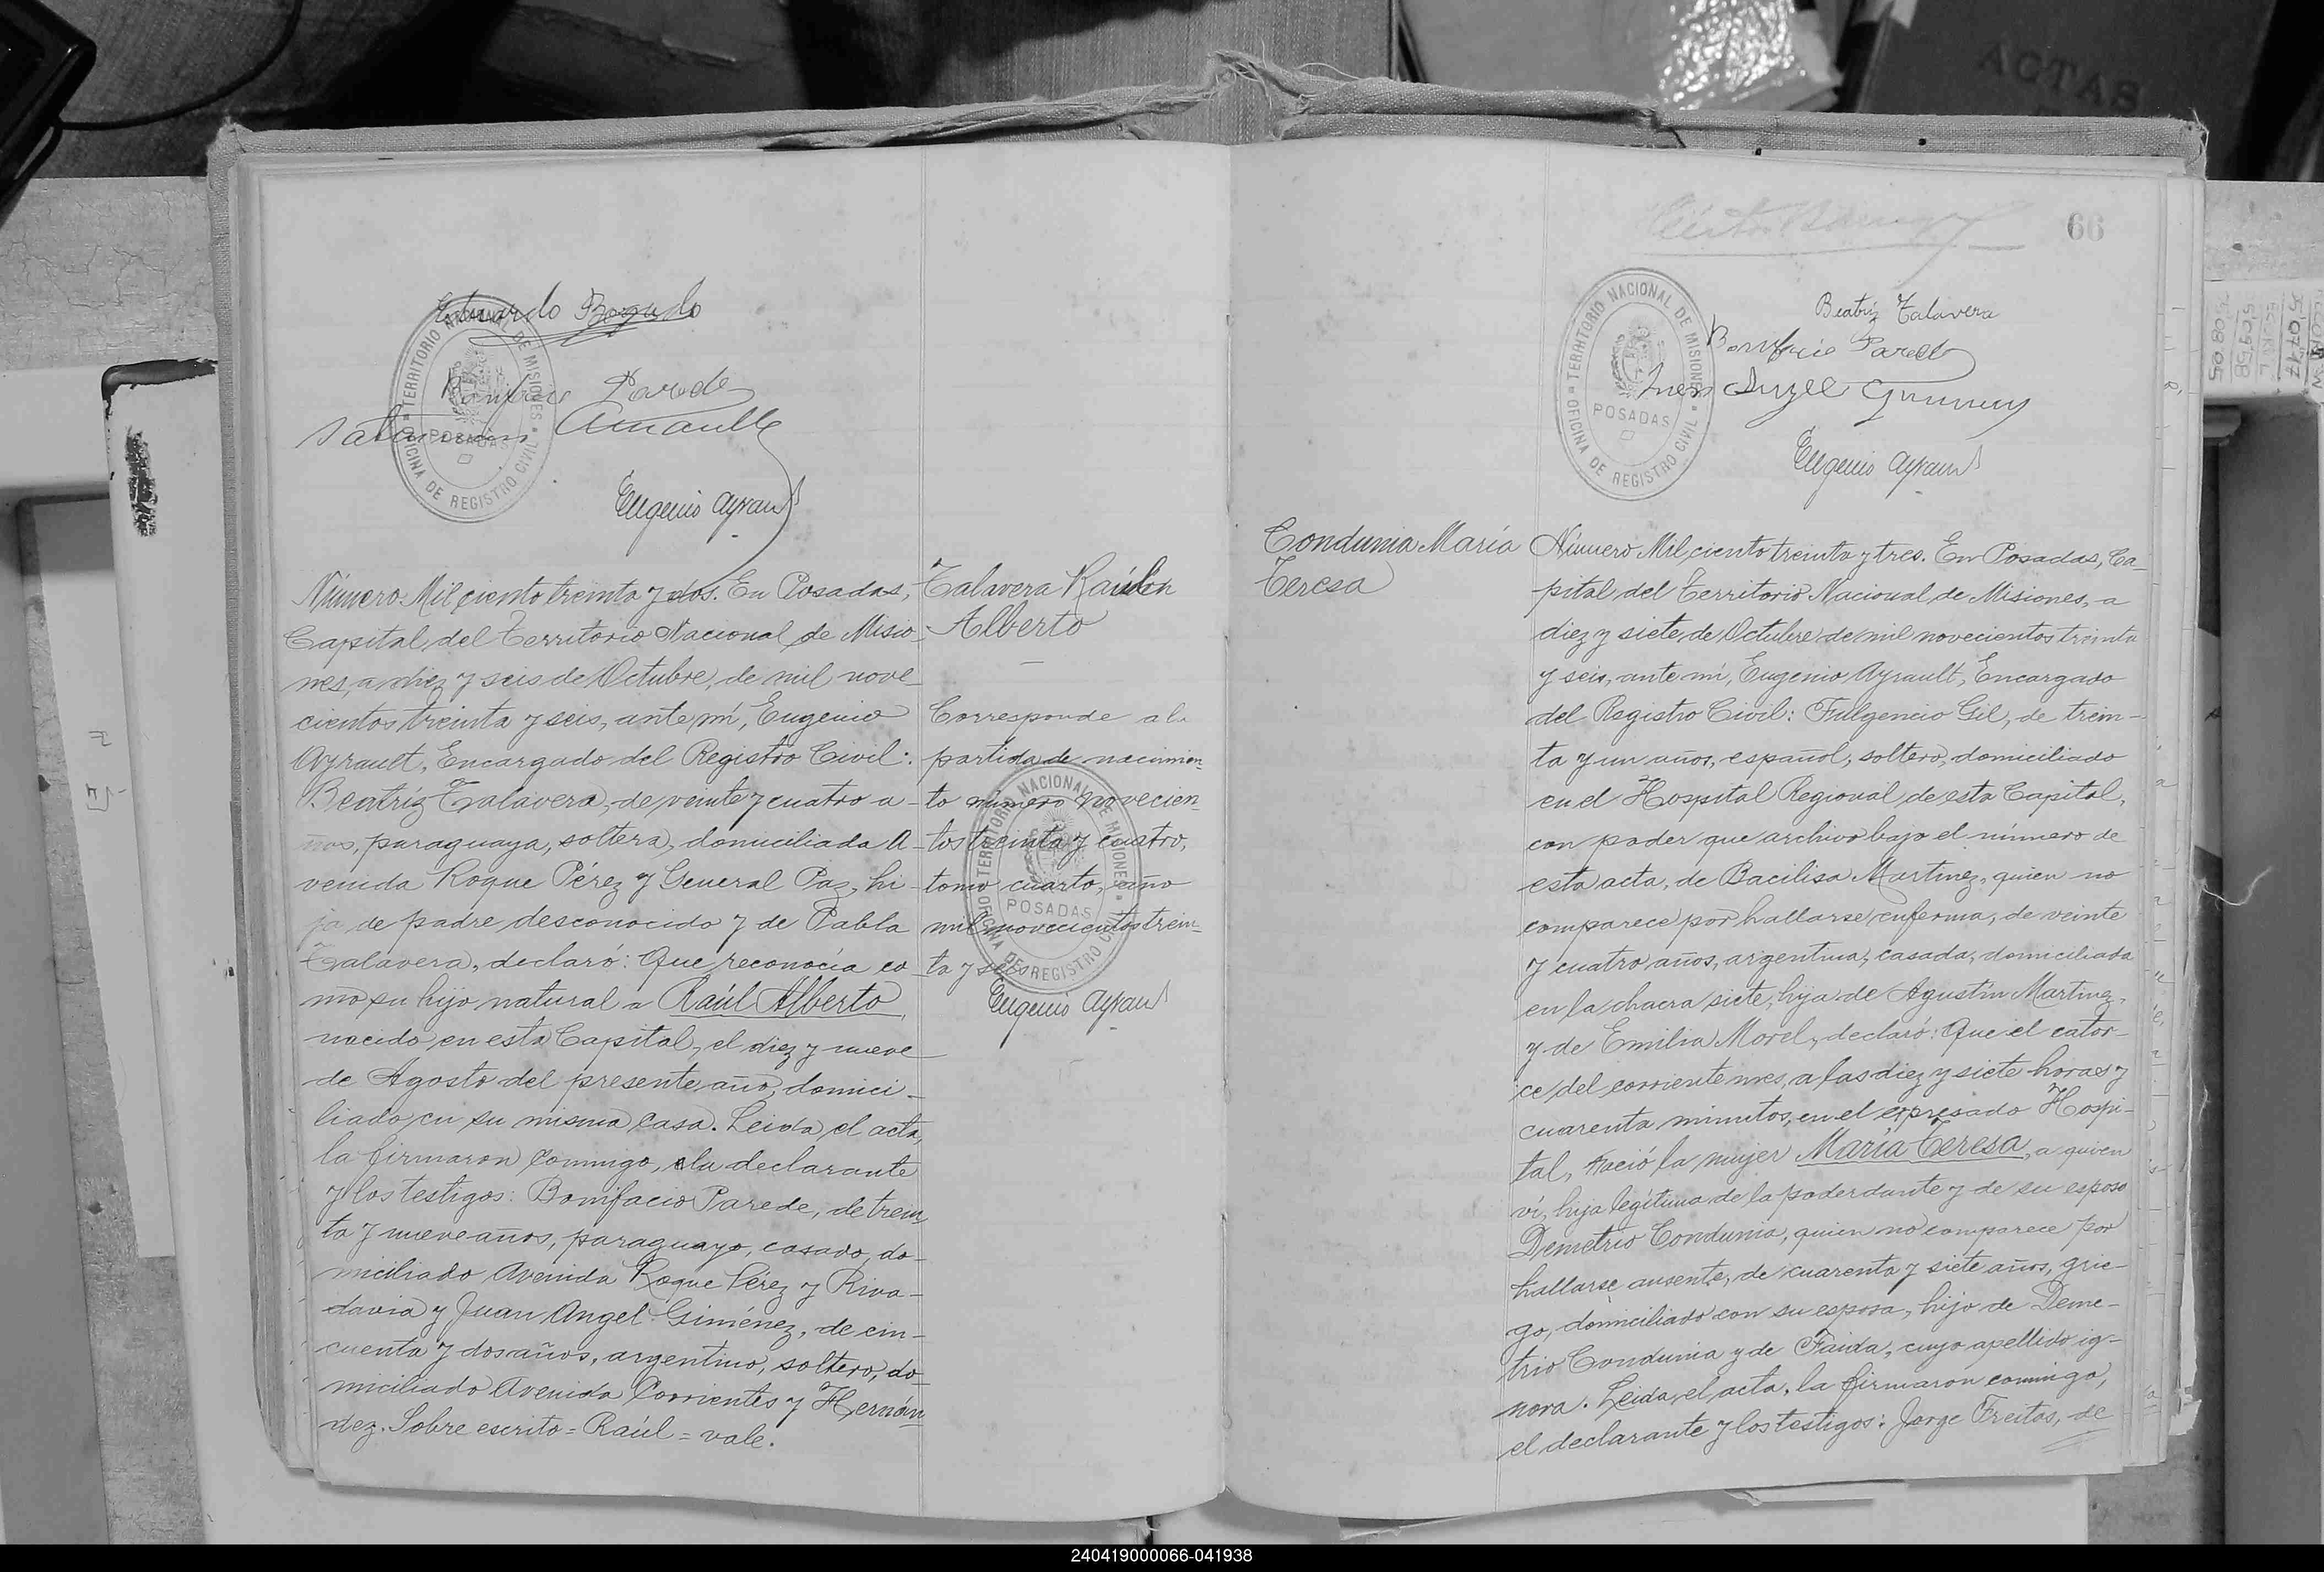 ACTAS
Eduardo Bogado
Bonifacio Parede
Eugenio Ayrault
TERRITORIO NACIONAL DE MISIONES
POSADAS
OFICINA DE REGISTRO CIVIL
Número Mil ciento treinta y dos. En Posadas,
Capital del Territorio Nacional de Misio-
nes, a diez y seis de Octubre, de mil nove-
cientos treinta y seis, ante mí, Eugenio
Ayrault, Encargado del Registro Civil:
Beatríz Talavera, de veinte y cuatro a-
ños, paraguaya, soltera, domiciliada A-
venida Roque Pérez y General Paz, hi-
ja de padre desconocido y de Pabla
Talavera, declaró: Que reconocía co-
mo su hijo natural a Raúl Alberto,
nacido en esta Capital, el diez y nueve
de Agosto del presente año, domici-
liado en su misma casa. Leida el acta,
la firmaron conmigo, la declarante
y los testigos: Bonifacio Parede, de trein-
ta y nueve años, paraguayo, casado, do-
miciliado Avenida Roque Pérez y Riva-
davia y Juan Angel Giménez, de cin-
cuenta y dos años, argentino, soltero, do-
miciliado Avenida Corrientes y Hernán-
dez. Sobre escrito = Raúl = vale.
Talavera Raúl
Alberto
Corresponde a la
partida de nacimien-
to número novecien-
tos treinta y cuatro,
tomo cuarto, año
mil novecientos trein-
ta y seis
Eugenio Ayrault
TERRITORIO NACIONAL DE MISIONES
POSADAS
OFICINA DE REGISTRO CIVIL
66
Beatriz Talavera
Bonifacio Parede
Juan Angel Gimenez
Eugenio Ayrault
TERRITORIO NACIONAL DE MISIONES
POSADAS
OFICINA DE REGISTRO CIVIL
Condunia María
Teresa
Número Mil ciento treinta y tres. En Posadas, Ca-
pital del Territorio Nacional de Misiones, a
diez y siete de Octubre de mil novecientos treinta
y seis, ante mí, Eugenio Ayrault, Encargado
del Registro Civil: Fulgencio Gil, de trein-
ta y un años, español, soltero, domiciliado
en el Hospital Regional de esta Capital,
con poder que archivo bajo el número de
esta acta, de Bacilisa Martinez, quien no
comparece por hallarse enferma, de veinte
y cuatro años, argentina, casada, domiciliada
en la chacra siete, hija de Agustín Martinez,
y de Emilia Morel, declaró: Que el cator-
ce del corriente mes, a las diez y siete horas y
cuarenta minutos, en el expresado Hospi-
tal, nació la mujer María Teresa, a quien
ví, hija legítima de la poderdante y de su esposo
Demetrio Condunia, quien no comparece por
hallarse ausente, de cuarenta y siete años, grie-
go, domiciliado con su esposa, hijo de Deme-
trio Condunia y de Faida, cuyo apellido ig-
nora. Leida el acta, la firmaron conmigo,
el declarante y los testigos: Jorge Freitas, de
240419000066-041938